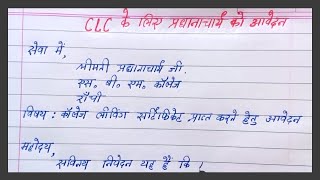 CLC के लिए प्रधानाचार्य को आवेदन
सेवा में,
श्रीमती प्रधानाचार्य जी.
एस. बी. एम. कॉलेज
राँची
विषय : कॉलेज लीविंग सर्टिफिकेट प्राप्त करने हेतु आवेदन
महोदय,
सविनय निवेदन यह है कि ।